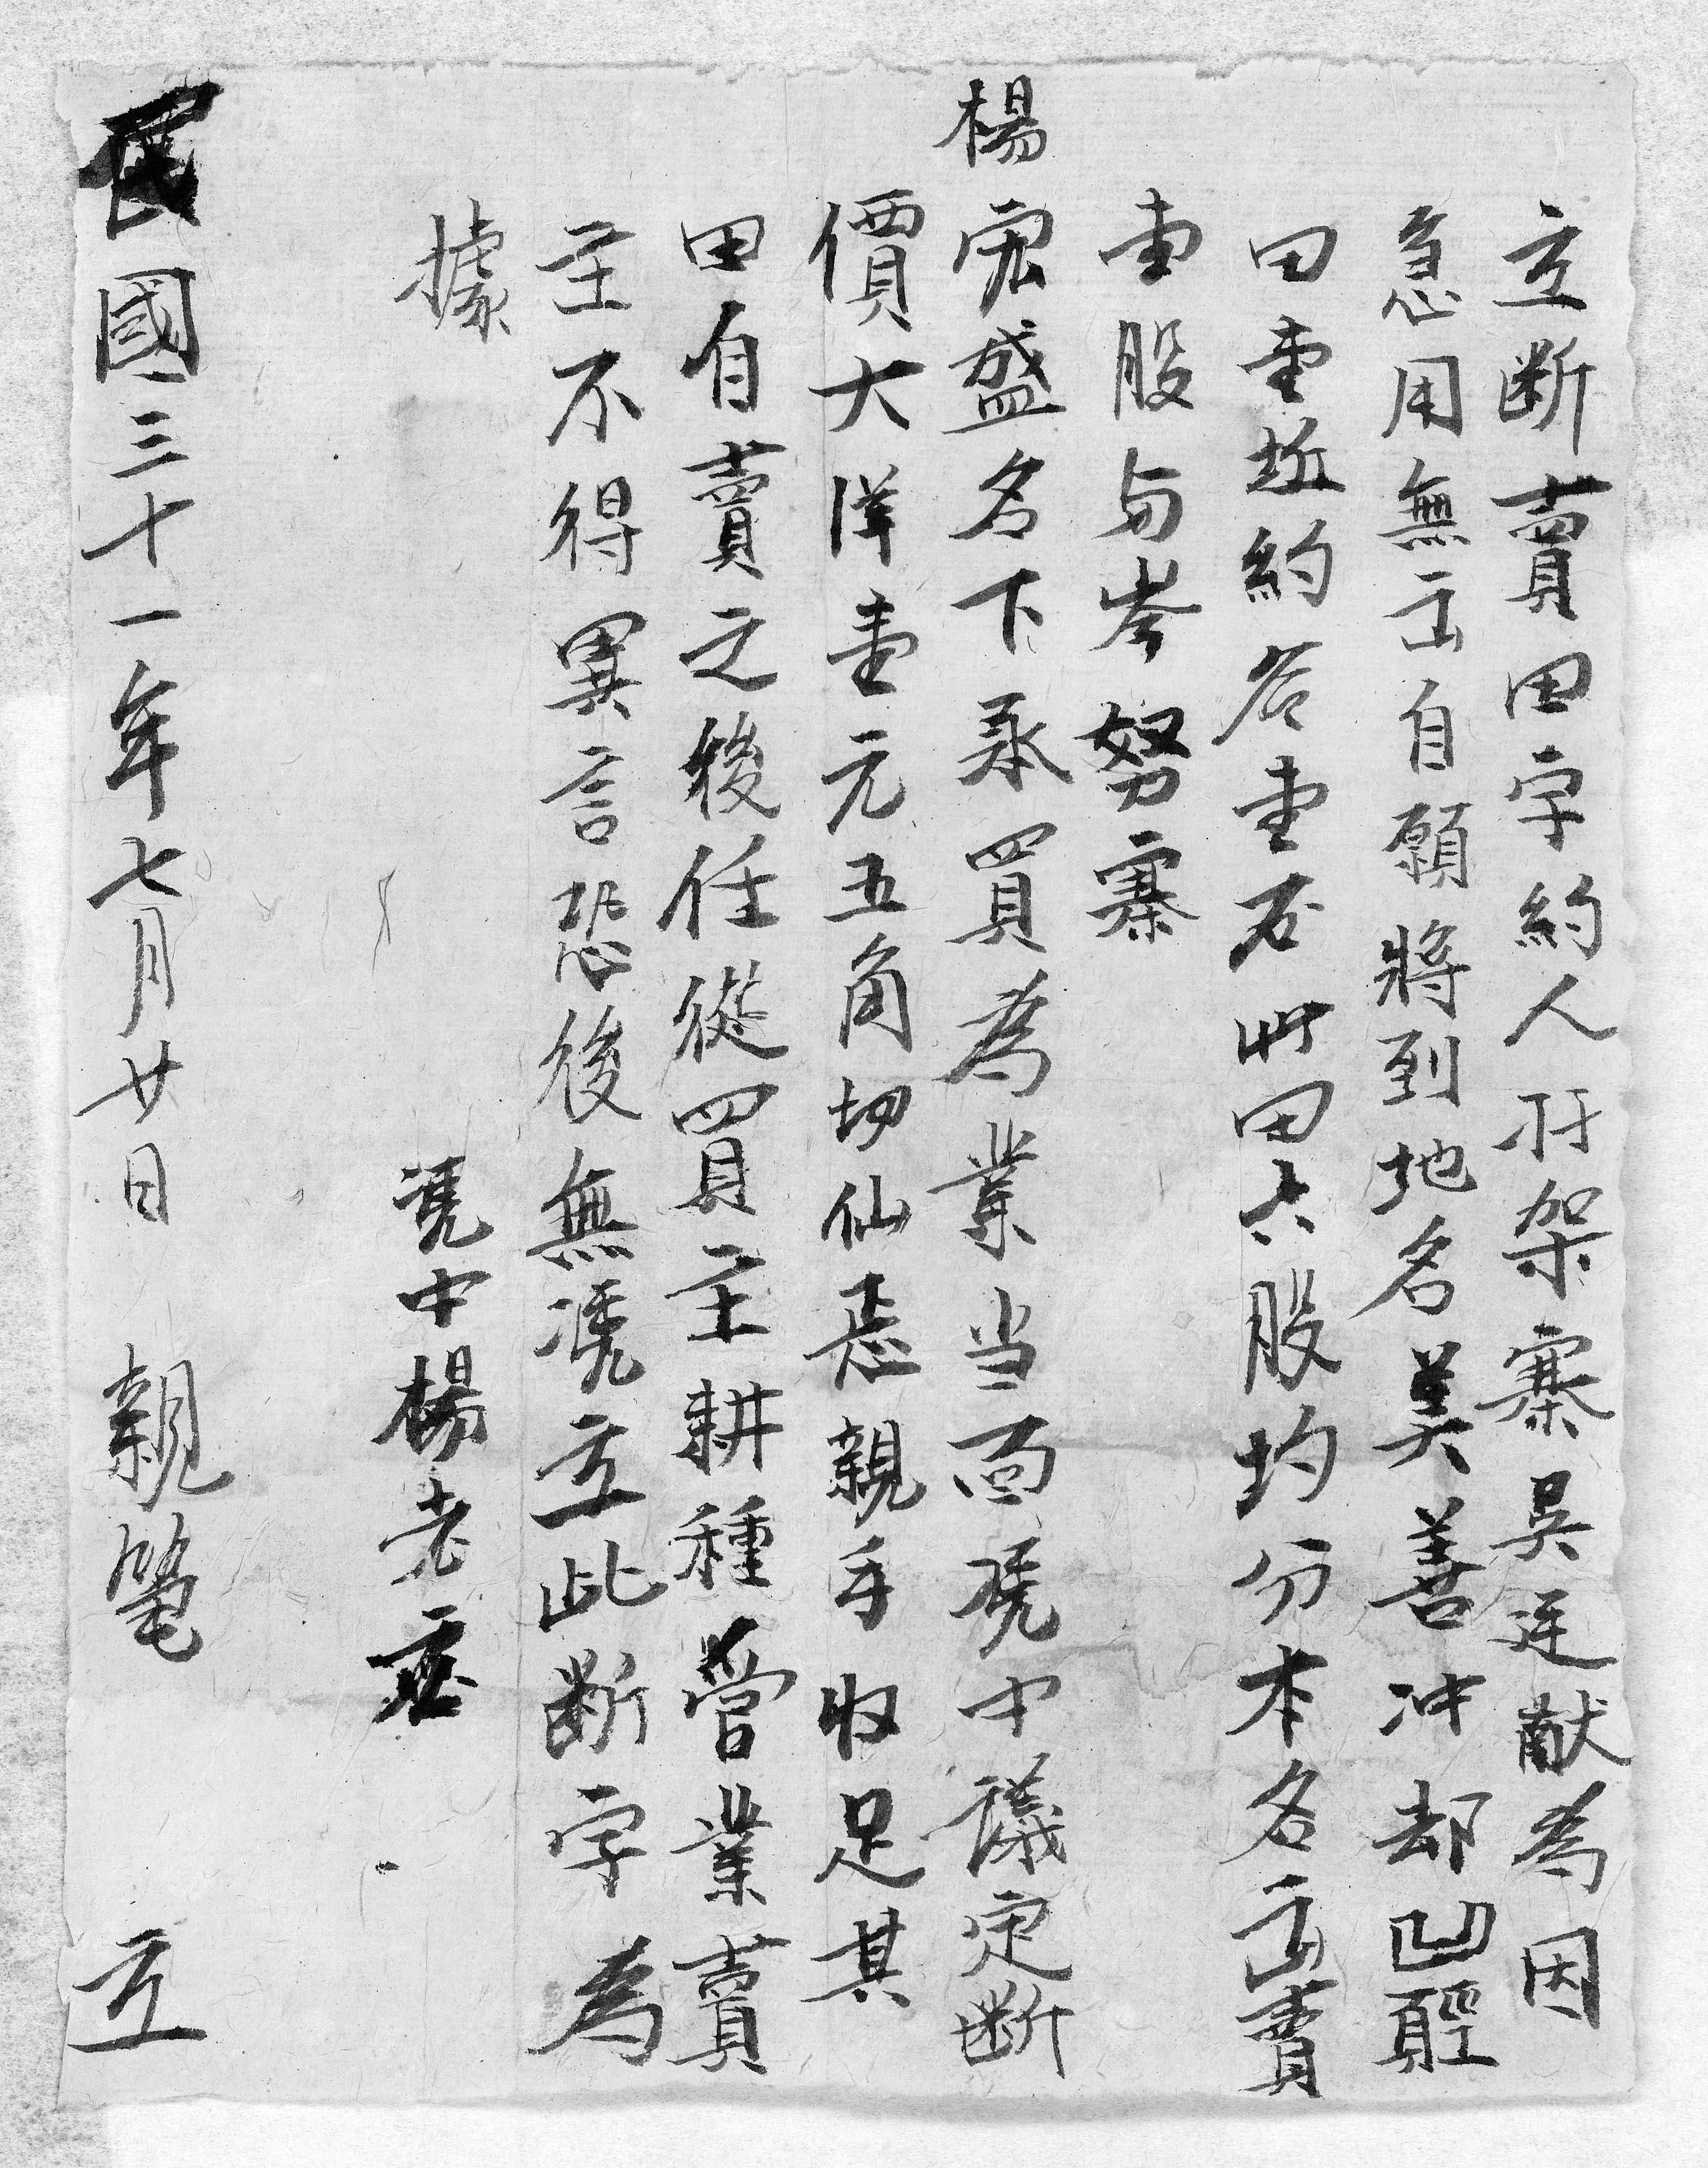 立断賣田字約人孖架寨吴廷献為因
急用無出自願將到地名美善冲却凹
田壹坵約谷壹石此田六股均分本名出賣
壹股与岑努寨
楊宏盛名下承買為業当面凴中議定断
價大洋壹元五角切仙悉親手收足其
田自賣之後任從買主耕種營業賣
主不得異言恐後無凴立此断字為
據
凴中楊老
民國三十一年七月廿日 親筆 立